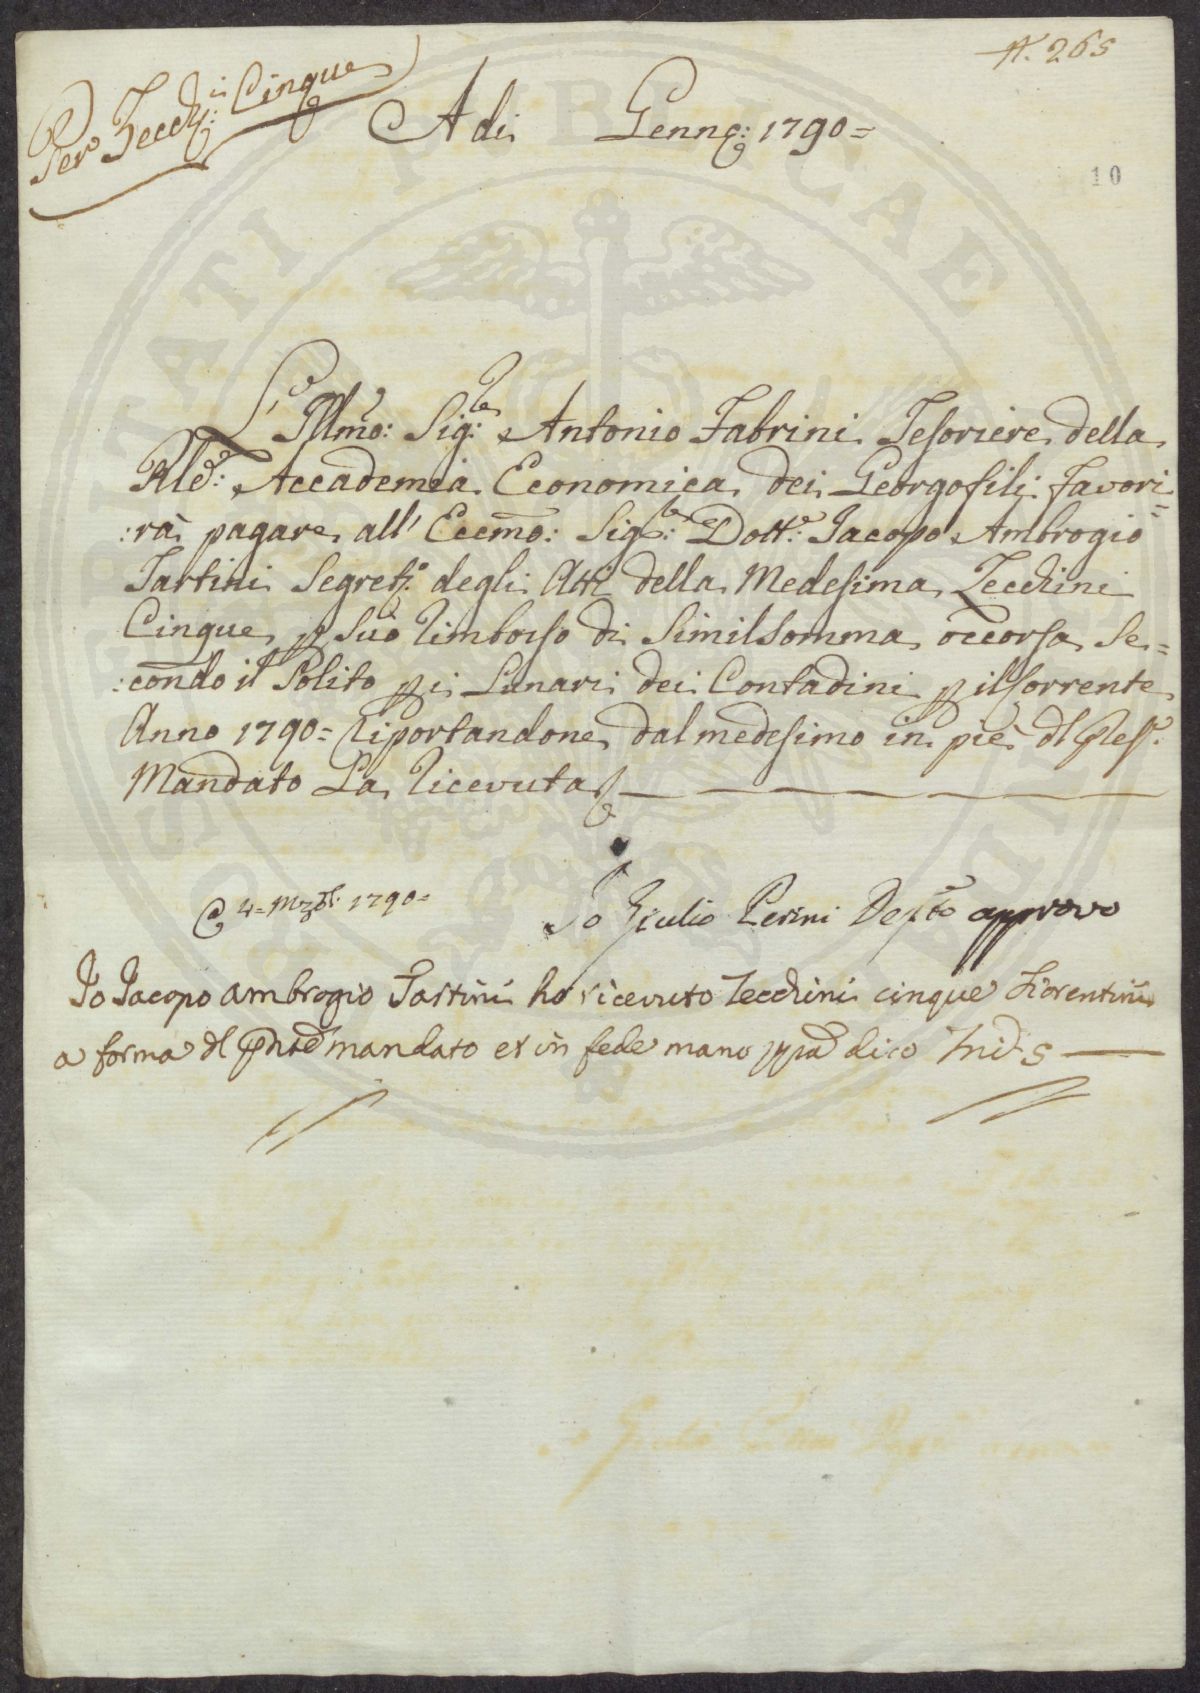 A. 265
Per Zecch:ni Cinque
A di Genna: 1790=
10
L'Illmo: Sig:re Antonio Fabrini Tesoriere della
Rle: Accademia Economica dei Georgofili favori=
:rà pagare all' Eccmo: Sigre: Dott:e Jacopo Ambrogio
Tartini Segret:o degli Atti della Medesima Zecchini
Cinque p suo rimborso di simil somma occorsa se=
:condo il solito p i Lunari dei Contadini p il corrente
Anno 1790= riportandone dal medesimo in piè dl
Mandato La ricevuta
1790=
Io Giulio Perini Depto approvo
Io Jacopo Ambrogio Tartini ho ricevuto Zecchini cinque fiorentini
a forma dl pnte mandato et in fede mano ppa dico 5